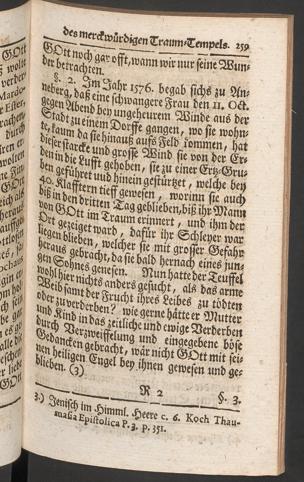 des merckwürdigen Traum-Tempels. 259
GOtt noch gar offt, wann wir nur seine Wun-
der betrachten.
§. 2. Im Jahr 1576. begab sichs zu An-
neberg, daß eine schwangere Frau den 11. Oct.
gegen Abend bey ungeheurem Winde aus der
Stadt zu einem Dorffe gangen, wo sie wohn-
te, kaum da sie hinauß aufs Feld kommen, hat
dieser starcke und grosse Wind sie von der Er-
den in die Lufft gehoben, sie zu einer Ertz-Gru-
ben geführet und hinein gestürtzet, welche bey
40. Klafftern tieff gewesen, worinn sie auch
biß in den dritten Tag geblieben, biß ihr Mann
von GOtt im Traum erinnert, und ihm der
Ort gezeiget ward, dafür ihr Schleyer war
liegen blieben, welcher sie mit grosser Gefahr
heraus gebracht, da sie bald hernach eines jun-
gen Sohnes genesen. Nun hatte der Teuffel
wohl hier nichts anders gesucht, als das arme
Weib samt der Frucht ihres Leibes zu tödten
oder zu verderben? wie gerne hätte er Mutter
und Kind in das zeitliche und ewige Verderben
durch Verzweiffelung und eingegebene böse
Gedancken gebracht, wär nicht GOtt mit sei-
nen heiligen Engel bey ihnen gewesen und ge-
blieben. (3)
R 2 §. 3.
3.) Jenisch im Himml. Heere c. 6. Koch Thau-
masia Epistolica P. 3. p. 351.